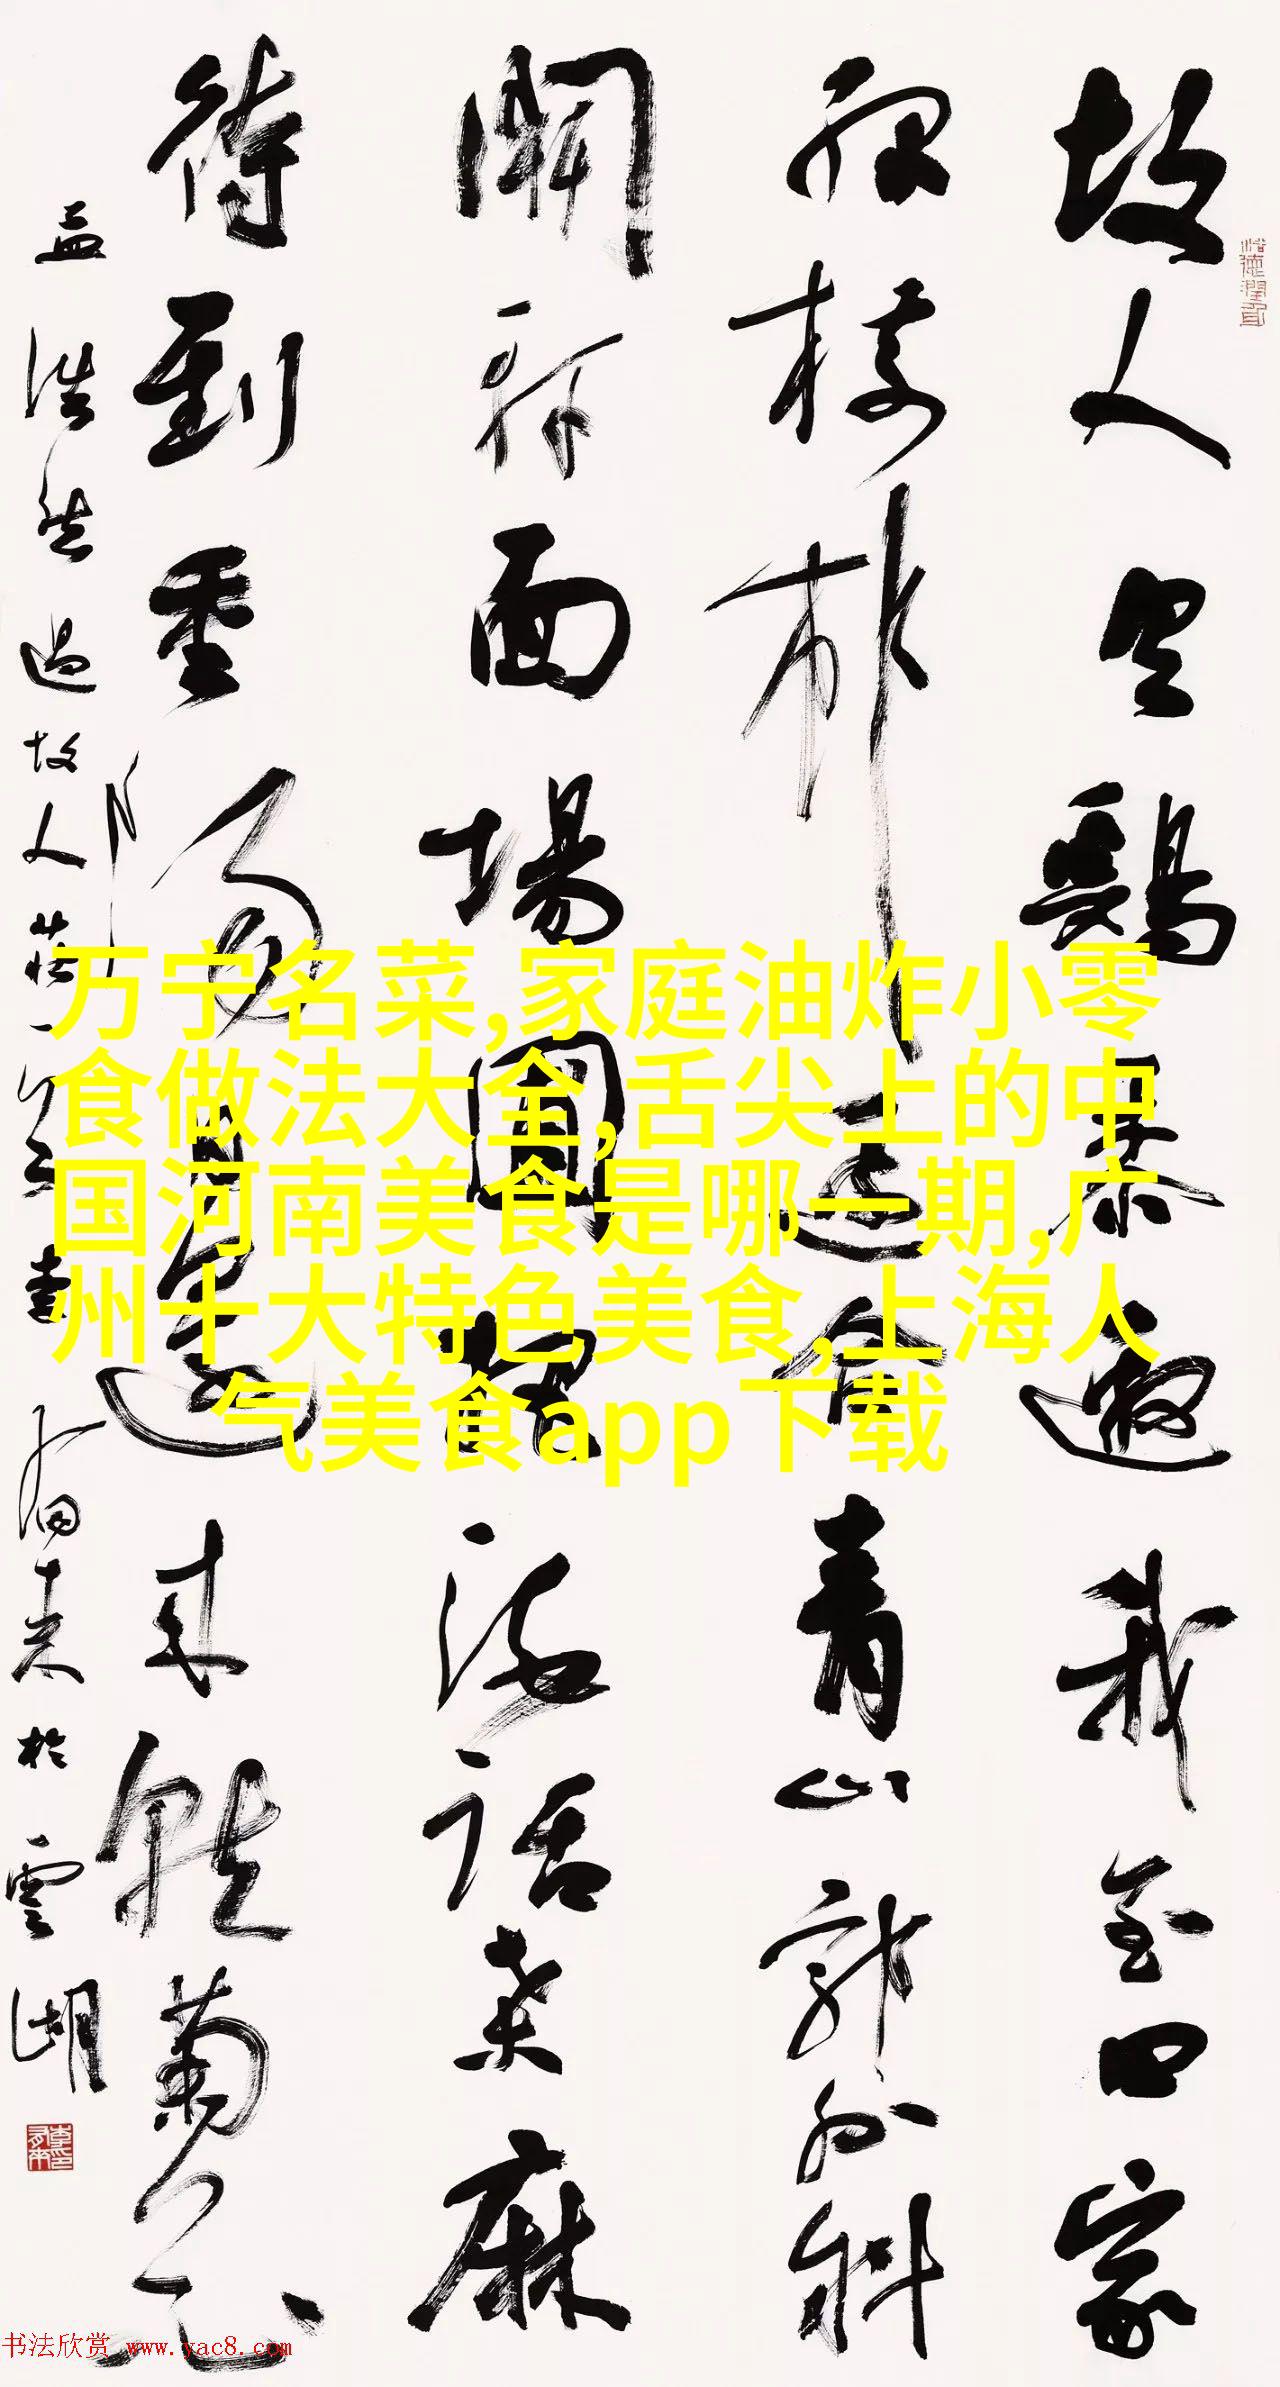 故人具鷄黍邀我至田家
緑樹村邊合青山郭外斜
開軒面場圃把酒話桑麻
待到重陽日還來就菊花
孟浩然過故人莊一 有来於雲湖
万宁名菜,家庭油炸小零
食做法大全,舌尖上的中
国河南美食是哪一期,广
州十大特色美食,上海人
气美食app下载
书法欣赏 www.yac8.com